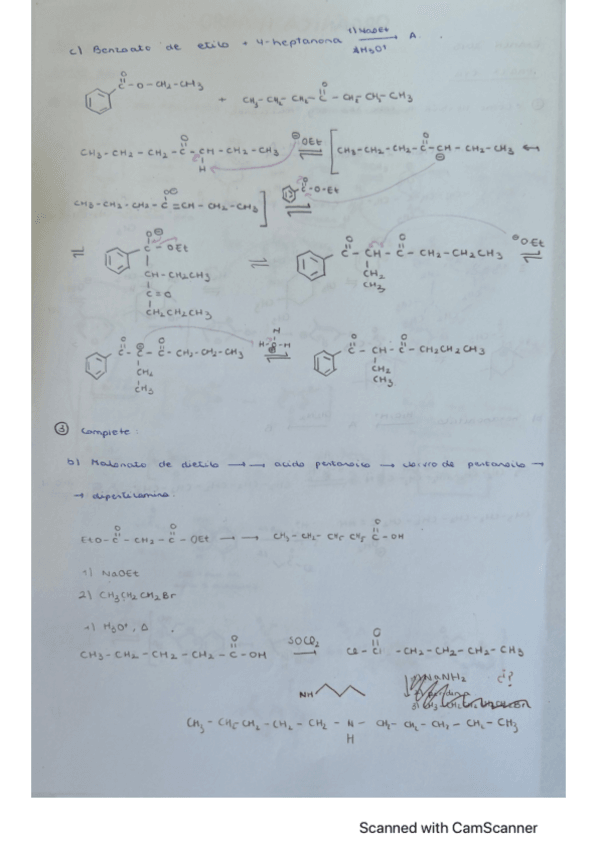 c) Benzoato de etilo + 4-heptanona 1) NaOEt → A.
2) H3O+
O
C-O-CH2-CH3
+ CH3-CH2-CH2-C-CH2-CH2-CH3
O
CH3-CH2-CH2-C-CH-CH2-CH3 ⊖OEt ⇌ [CH3-CH2-CH2-C-CH-CH2-CH3 ↔
H
CH3-CH2-CH2-C=CH-CH2-CH3] C-O-Et ⇌
⇌ C-OEt ⇌ C-CH-C-CH2-CH2CH3 ⊖OEt ⇌
CH-CH2CH3
CH2
C=O
CH3
CH2CH2CH3
C-C-C-CH2-CH2-CH3 H-O-H ⇌ C-CH-C-CH2CH2CH3
CH2 CH2
CH3 CH3
③ Complete:
b) Malonato de dietilo → → acido pentanoico → cloruro de pentanoilo →
→ dipentilamina:
EtO-C-CH2-C-OEt → → CH3-CH2-CH2-CH2-C-OH
1) NaOEt
2) CH3CH2CH2Br
3) H3O+, Δ
CH3-CH2-CH2-CH2-C-OH SOCl2 → Cl-C-CH2-CH2-CH2-CH3
NH NaNH2 ¿?
CH3-CH2-CH2-CH2-CH2-N-CH2-CH2-CH2-CH2-CH3
H
Scanned with CamScanner